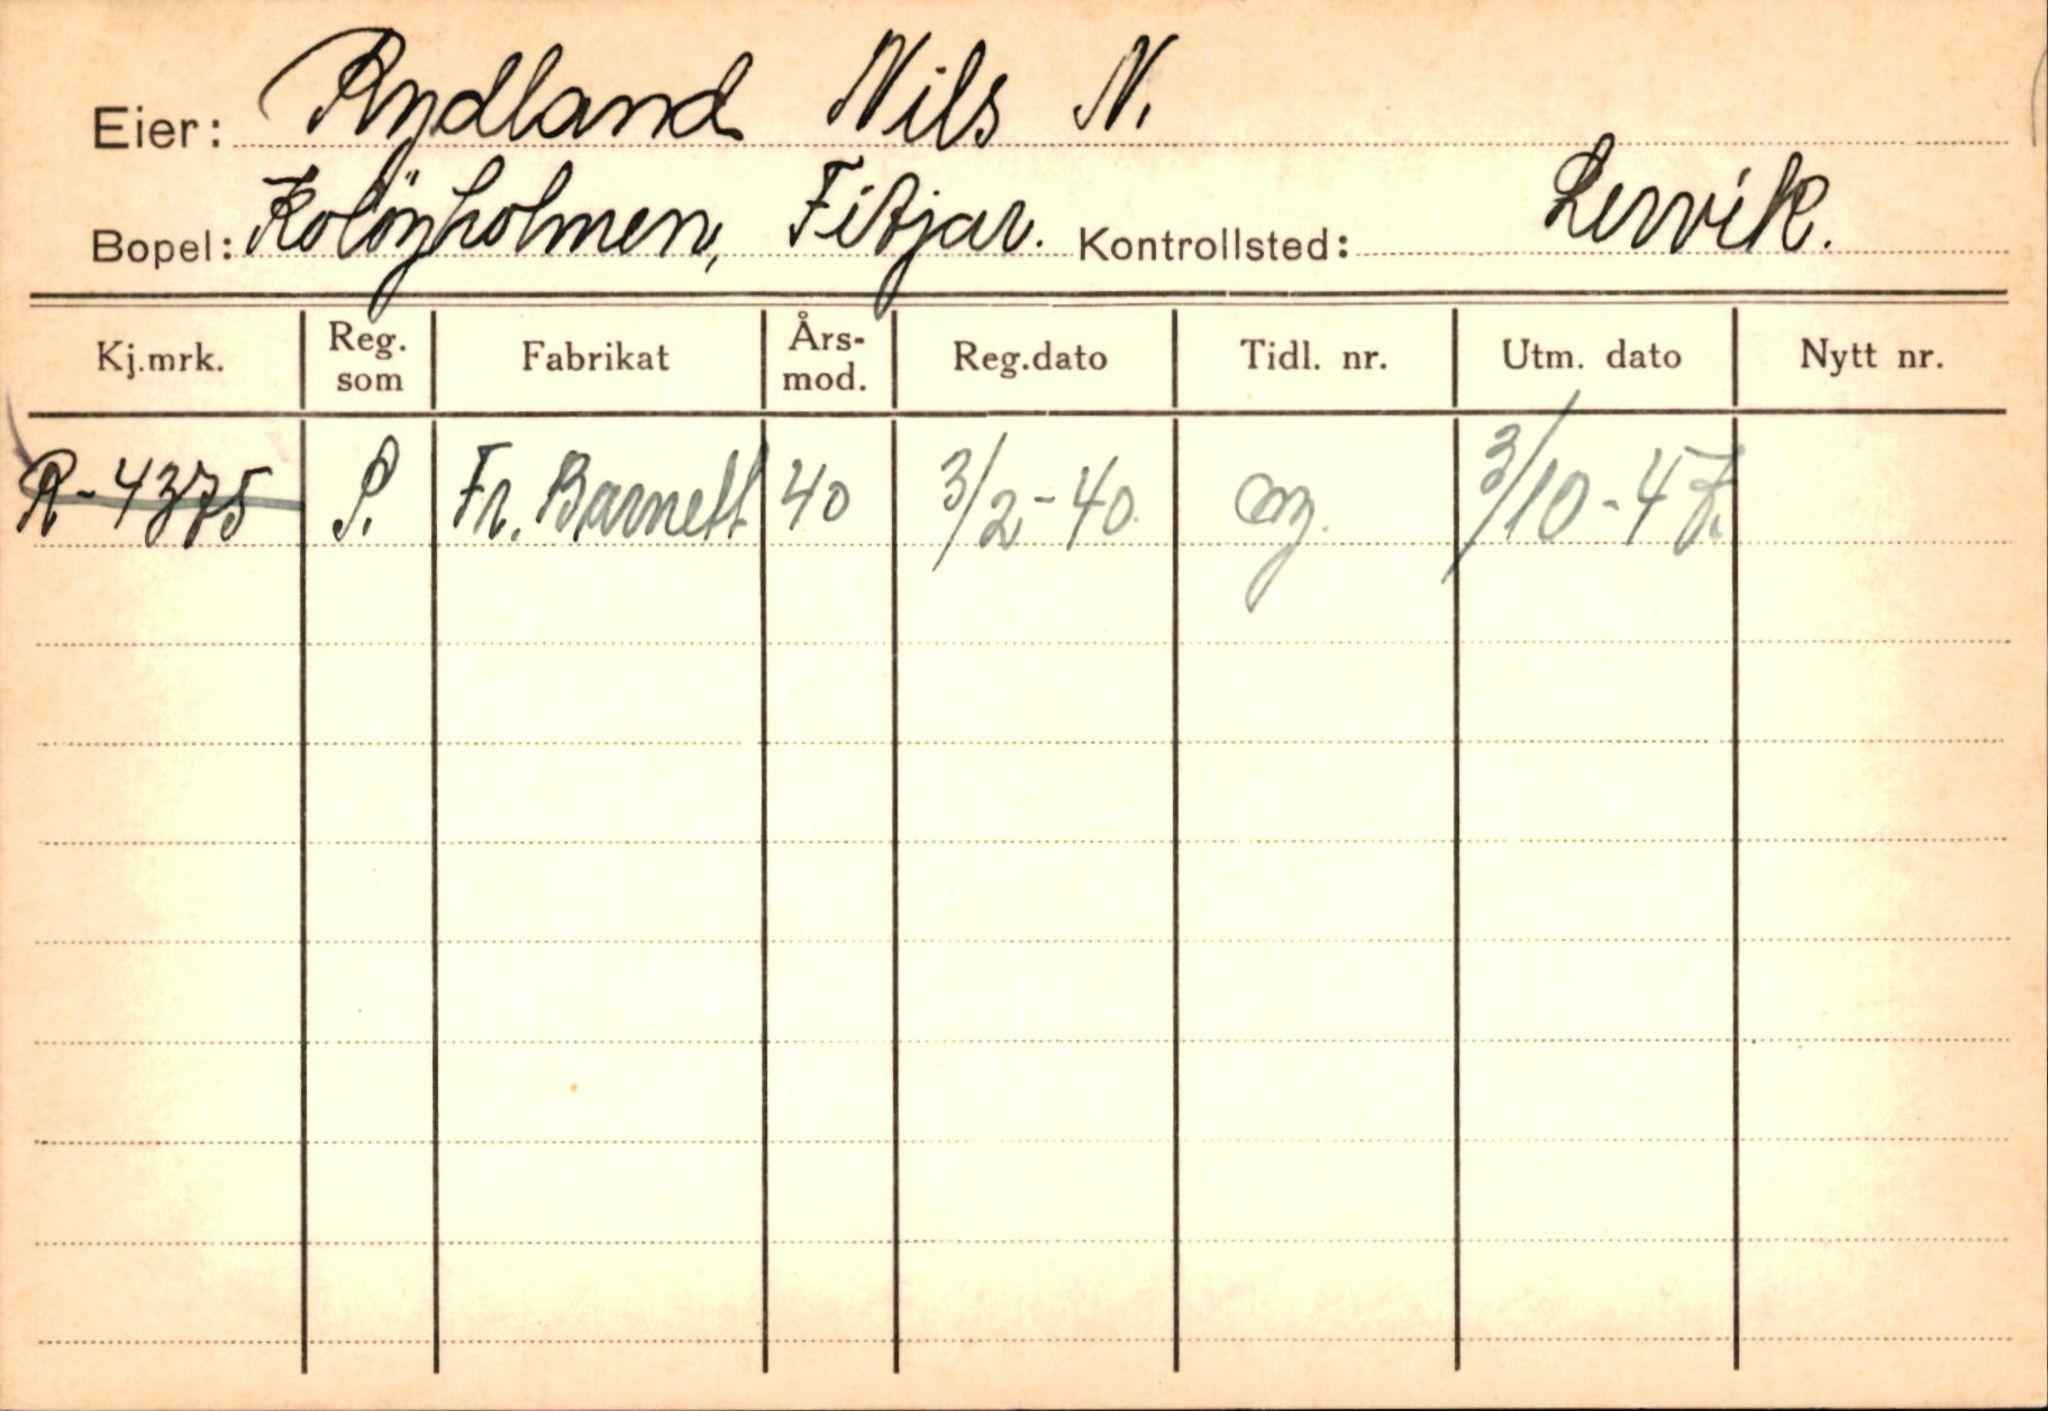 Eier: Rydland Nils N.
Bopel: Kolöyholmen, Fitjar. Kontrollsted: Lervik.
Kj.mrk. Reg. som Fabrikat Års-mod. Reg.dato Tidl. nr. Utm. dato Nytt nr.
R-4375 P. Fr. Barnett 40 3/2-40. 3/10-47.